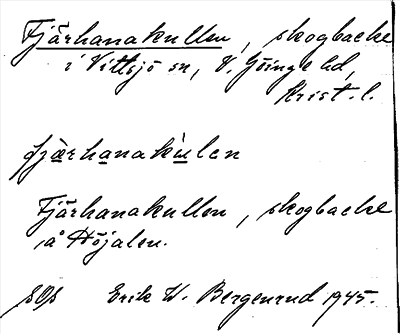 Fjärhanakullen, skogbacke
i Vittsjö sn, V. Göinge hd,
Krist. l.
fjærhanakùlen
Fjärhanakullen, skogbacke
å Höjalen.
Erik W. Bergenrud 1945.